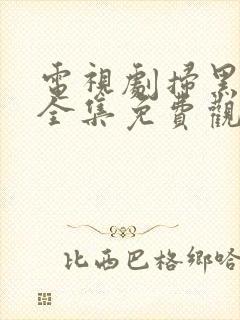 電視劇掃黑
全集免費觀
比西巴格鄉哈